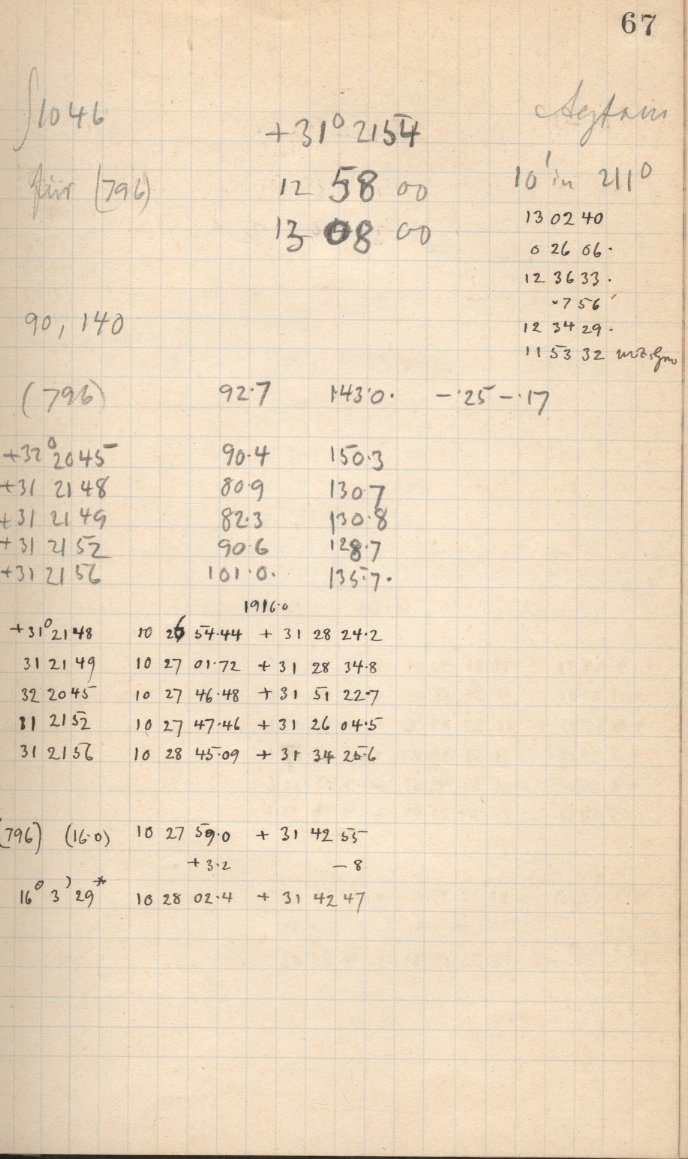 67
1046
+31° 2154
für (796)
12 58 00
13 08 00
10' in 211°
13 02 40
0 26 06.
12 36 33.
.7 56
12 34 29.
11 53 32
90, 140
(796) 92.7 143.0. -.25 -.17
+32° 2045 90.4 150.3
+31 2148 80.9 130.7
+31 2149 82.3 130.8
+31 2152 90.6 128.7
+31 2156 101.0. 135.7.
1916.0
+31° 2148 10 26 54.44 + 31 28 24.2
31 2149 10 27 01.72 + 31 28 34.8
32 2045 10 27 46.48 + 31 51 22.7
31 2152 10 27 47.46 + 31 26 04.5
31 2156 10 28 45.09 + 31 34 25.6
(796) (16.0) 10 27 59.0 + 31 42 55
+3.2 - 8
16° 3' 29* 10 28 02.4 + 31 42 47